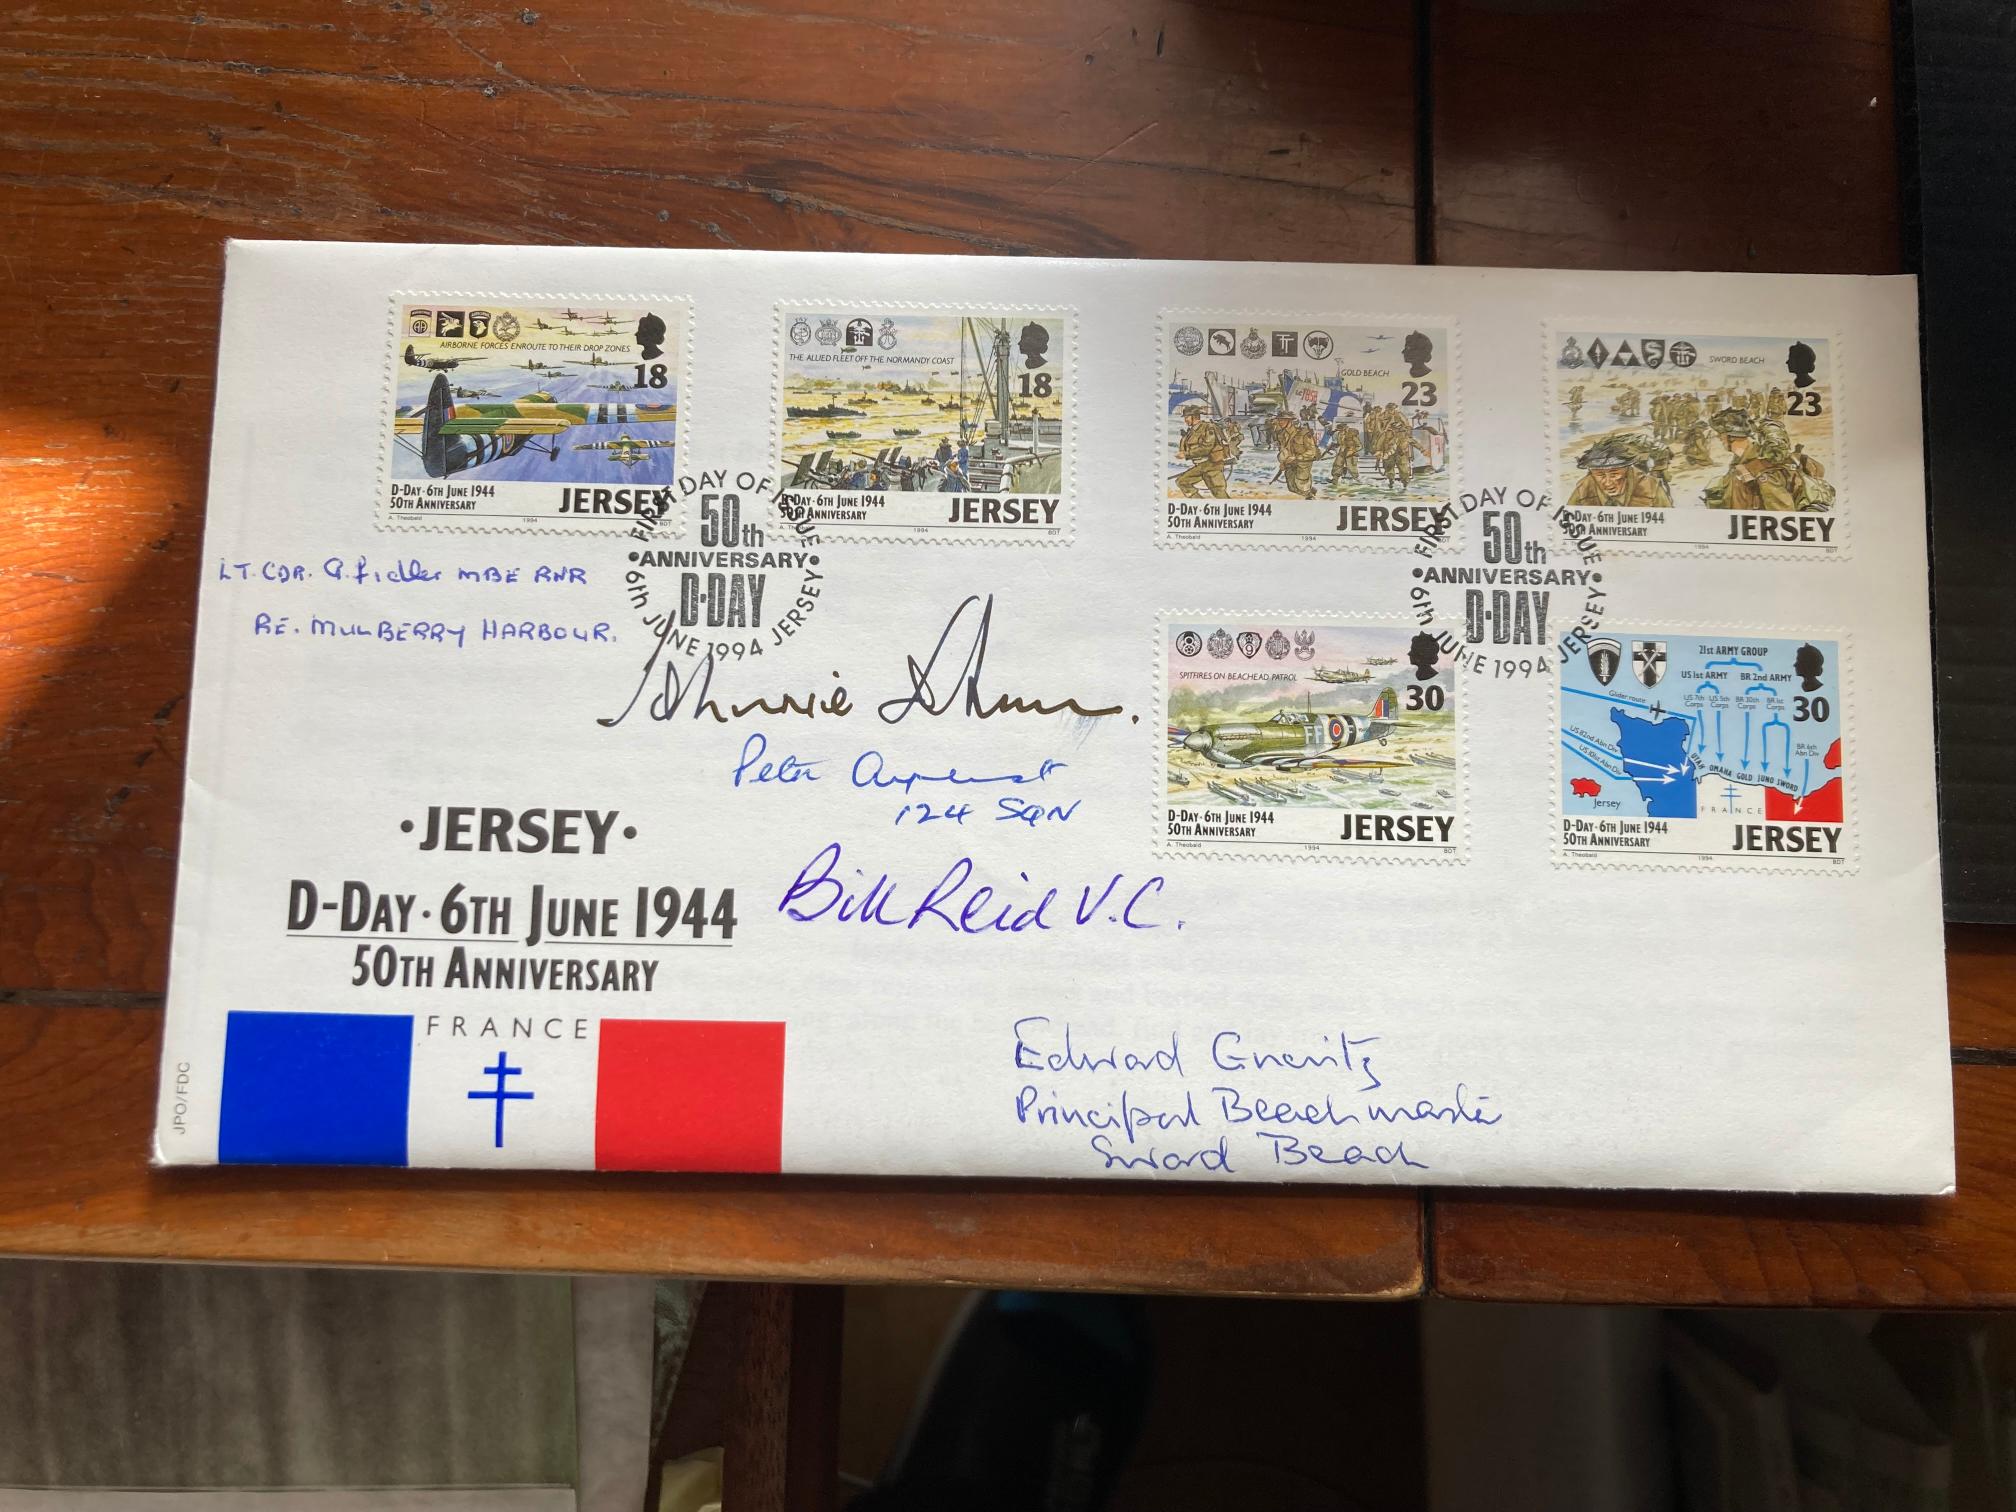 AIRBORNE FORCES ENROUTE TO THEIR DROP ZONES
18
D-DAY · 6TH JUNE 1944
50TH ANNIVERSARY
JERSEY
A. Theobald 1994 BDT
THE ALLIED FLEET OFF THE NORMANDY COAST
18
D-DAY · 6TH JUNE 1944
50TH ANNIVERSARY
JERSEY
A. Th 1994 BDT
GOLD BEACH
23
D-DAY · 6TH JUNE 1944
50TH ANNIVERSARY
JERSEY
A. Theobald 1994
SWORD BEACH
23
D-DAY · 6TH JUNE 1944
50TH ANNIVERSARY
JERSEY
1994 BDT
FIRST DAY OF ISSUE
50th
•ANNIVERSARY•
D-DAY
6th JUNE 1994 JERSEY
FIRST DAY OF ISSUE
50th
•ANNIVERSARY•
D-DAY
6th JUNE 1994 JERSEY
LT. CDR. G. Fidler MBE RNR
RE. MULBERRY HARBOUR.
Johnnie
Peter
124 SQN
Bill Reid V.C.
SPITFIRES ON BEACHHEAD PATROL
30
D-DAY · 6TH JUNE 1944
50TH ANNIVERSARY
JERSEY
A. Theobald 1994 BDT
21st ARMY GROUP
US 1st ARMY BR 2nd ARMY
US 7th Corps US 5th Corps BR 30th Corps BR 1st Corps
30
Glider route
US 82nd Abn Div
US 101st Abn Div
BR 6th Abn Div
UTAH OMAHA GOLD JUNO SWORD
Jersey
FRANCE
D-DAY · 6TH JUNE 1944
50TH ANNIVERSARY
JERSEY
A. Theobald 1994 BDT
•JERSEY•
D-DAY · 6TH JUNE 1944
50TH ANNIVERSARY
FRANCE
JPO/FDC
Edward Gueritz
Principal Beachmaster
Sword Beach